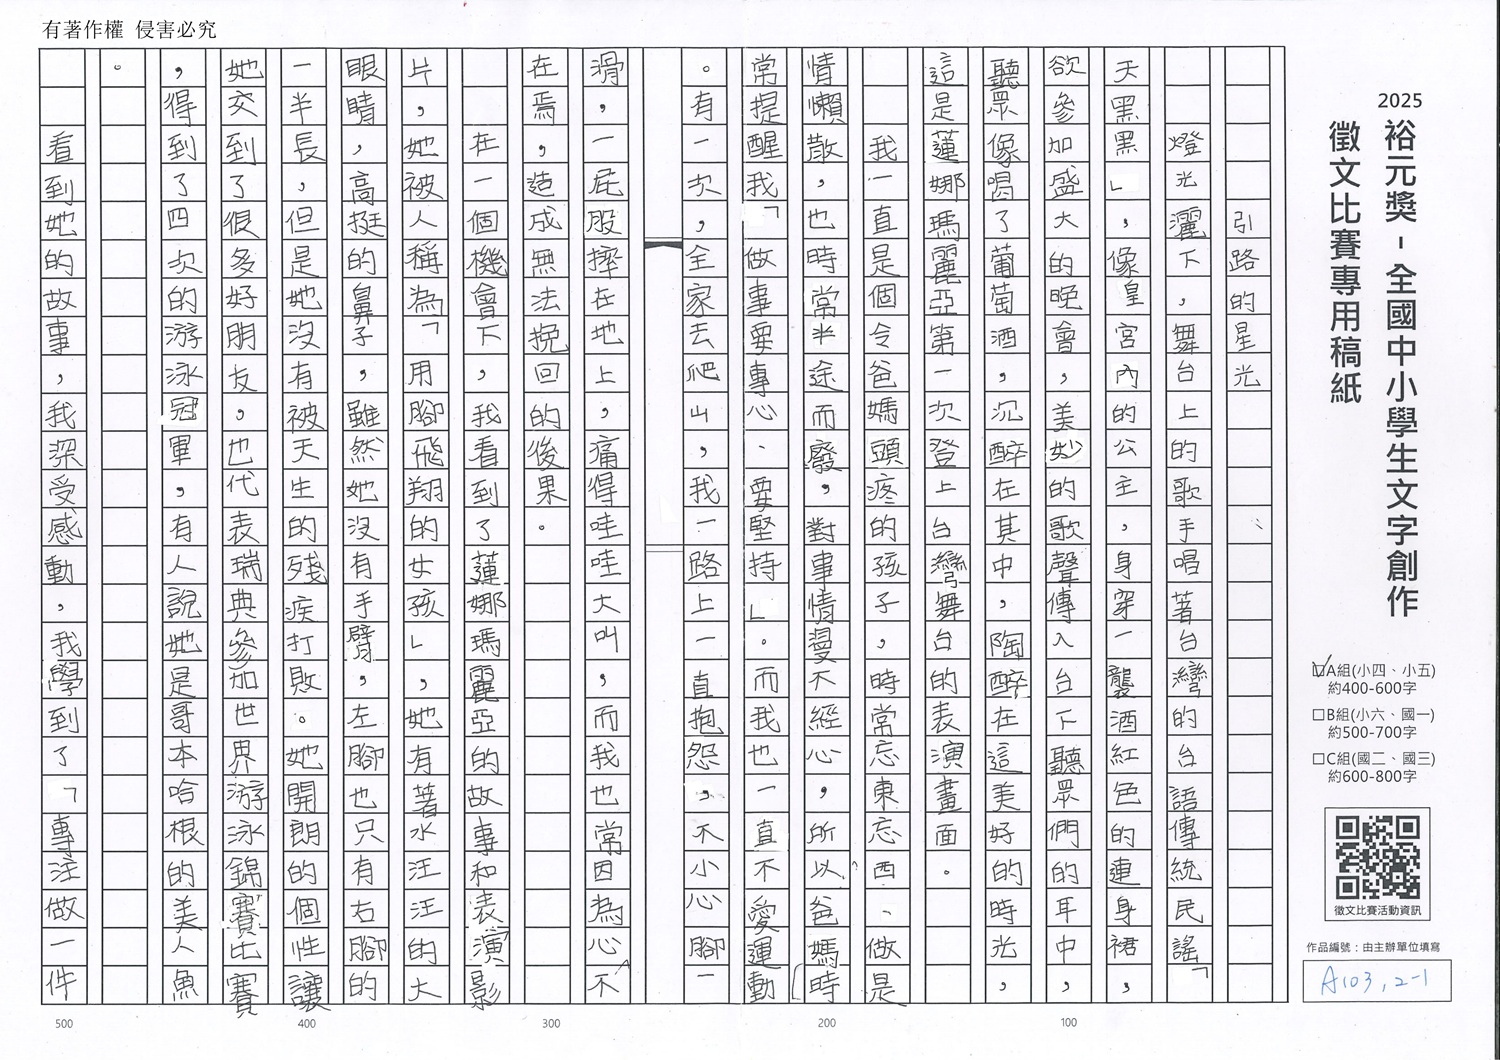 有著作權 侵害必究
2025
裕元獎-全國中小學生文字創作
徵文比賽專用稿紙
A組(小四、小五)
約400-600字
B組(小六、國一)
約500-700字
C組(國二、國三)
約600-800字
徵文比賽活動資訊
作品編號:由主辦單位填寫
A103,2-1
引路的星光
燈光灑下,舞台上的歌手唱著台灣的台語傳統民謠「
天黑黑」,像皇宮內的公主,身穿一襲酒紅色的連身裙,
欲參加盛大的晚會,美妙的歌聲傳入台下聽眾們的耳中,
聽眾像喝了葡萄酒,沉醉在其中,陶醉在這美好的時光,
這是蓮娜瑪麗亞第一次登上台灣舞台的表演畫面。
我一直是個令爸媽頭疼的孩子,時常忘東忘西、做是
情懶散,也時常半途而廢,對事情漫不經心,所以爸媽時
常提醒我「做事要專心、要堅持」。而我也一直不愛運動
。有一次,全家去爬山,我一路上一直抱怨,不小心腳一
滑,一屁股摔在地上,痛得哇哇大叫,而我也常因為心不
在焉,造成無法挽回的後果。
在一個機會下,我看到了蓮娜瑪麗亞的故事和表演影
片,她被人稱為「用腳飛翔的女孩」,她有著水汪汪的大
眼睛,高挺的鼻子,雖然她沒有手臂,左腳也只有右腳的
一半長,但是她沒有被天生的殘疾打敗。她開朗的個性讓
她交到了很多好朋友,也代表瑞典參加世界游泳錦賽比賽
,得到了四次的游泳冠軍,有人說她是哥本哈根的美人魚
。
看到她的故事,我深受感動,我學到了「專注做一件
100
200
300
400
500